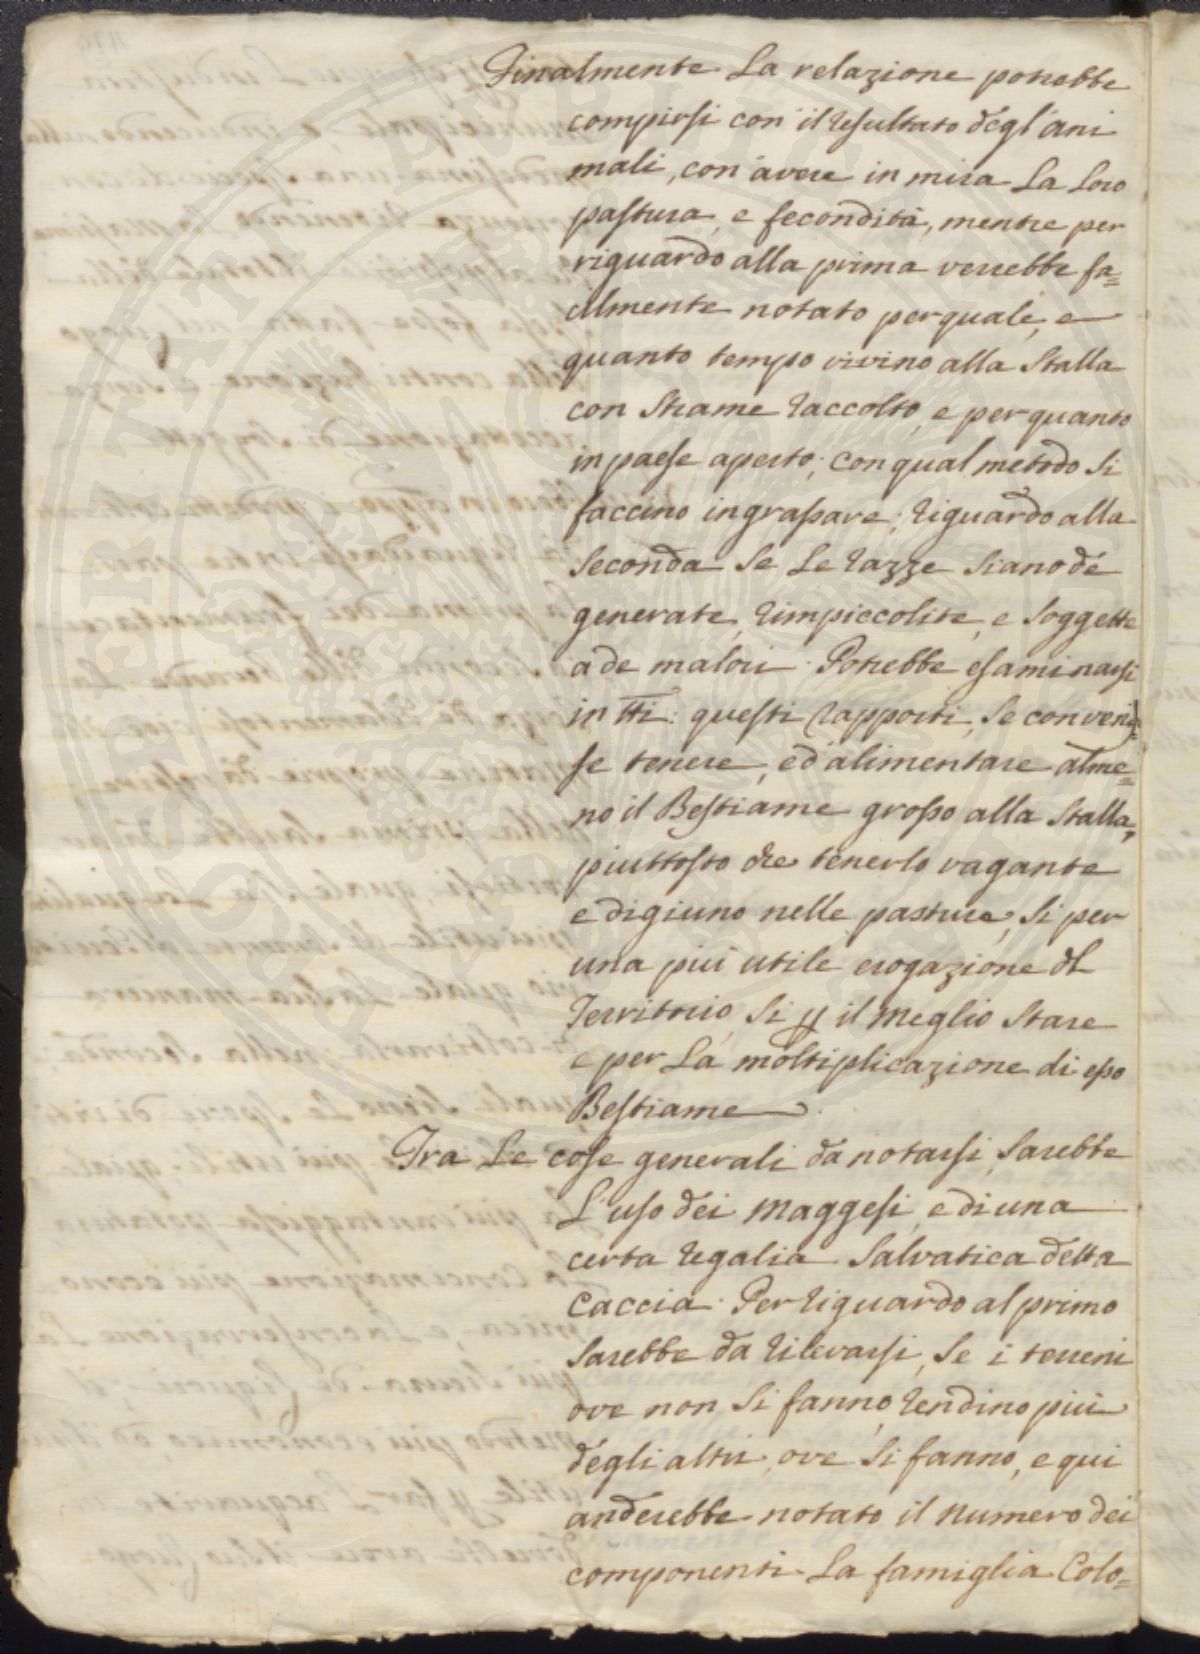 Finalmente La relazione potrebbe
compirsi con il resultato degl'ani
mali, con avere in mira La Loro
pastura, e fecondità, mentre per
riguardo alla prima verrebbe fa=
cilmente notato per quale, e
quanto tempo vivino alla Stalla
con Strame raccolto, e per quanto
in paese aperto; con qual metodo Si
faccino ingrassare; riguardo alla
Seconda Se Le razze Siano de
generate, rimpiccolite, e Soggette
a de malori. Potrebbe esaminarsi
in tti: questi rapporti, Se convenis=
se tenere, ed alimentare alme=
no il Bestiame grosso alla Stalla,
piuttosto che tenerlo vagante
e digiuno nelle pasture, Si per
una più utile erogazione dl
Territorio, Si p il meglio Stare
e per La moltiplicazione di esso
Bestiame.
Tra Le cose generali da notarsi, Sarebbe
L'uso dei Maggesi, e di una
certa regalia Salvatica detta
Caccia. Per riguardo al primo
Sarebbe da rilevarsi, Se i terreni
ove non Si fanno, rendino più
degli altri, ove Si fanno, e qui
anderebbe notato il numero dei
componenti La famiglia Colo=